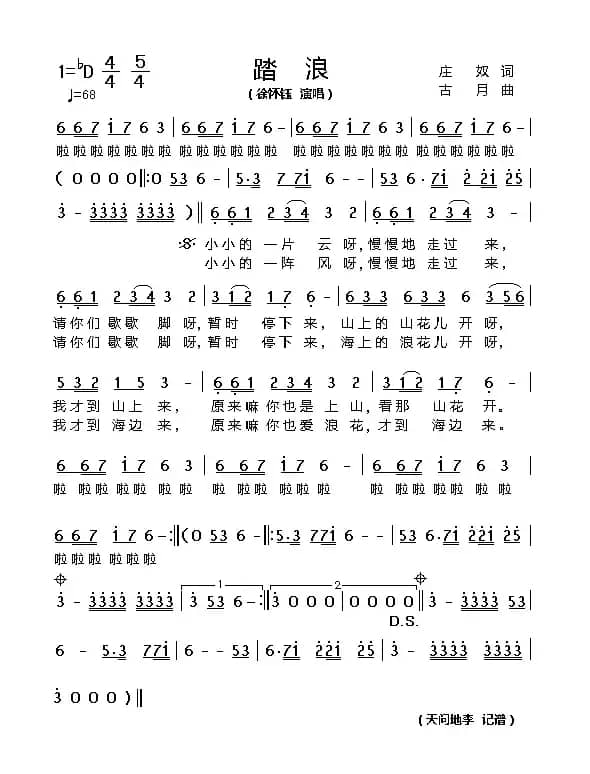 踏 浪
1=♭D 4/4 5/4
♩=68
(徐怀钰 演唱)
庄 奴 词
古 月 曲
6 67 i7 6 3 | 6 67 i7 6 - | 6 67 i7 6 3 | 6 67 i7 6 - |
啦 啦啦 啦啦 啦 啦 啦 啦啦 啦啦 啦 啦 啦啦 啦啦 啦 啦 啦 啦啦 啦啦 啦
( 0 0 0 0 ‖: 0 53 6 - | 5·3 7 7i 6 - - | 53 6·7i 2 2i 25 |
3 - 3333 3333 ) ‖ 6 61 2 34 3 2 | 6 61 2 34 3 - |
小小的 一片 云 呀,慢慢地 走过 来,
小小的 一阵 风 呀,慢慢地 走过 来,
6 61 2 34 3 2 | 3 12 1 7 6 - | 6 67 i 7 6 7 6 | 3 56
请你们 歇歇 脚 呀,暂时 停下 来, 山上的 山花儿 开 呀,
请你们 歇歇 脚 呀,暂时 停下 来, 海上的 浪花儿 开 呀,
5 32 1 5 3 - | 6 61 2 34 3 2 | 3 12 1 7 6 - |
我才到 山上 来, 原来嘛 你也是 上 山,看那 山花 开。
我才到 海边 来, 原来嘛 你也爱 浪 花,才到 海边 来。
6 67 i7 6 3 | 6 67 i7 6 - | 6 67 i7 6 3 |
啦 啦啦 啦啦 啦 啦 啦 啦啦 啦啦 啦 啦 啦啦 啦啦 啦 啦
6 67 i7 6 - :‖ (0 53 6 - ‖: 5·3 77i 6 - - | 53 6·7i 22i 25 |
啦 啦啦 啦啦 啦
3 - 3333 3333 | 3 53 6 - :‖ 3 0 0 0 | 0 0 0 0 ‖ 3 - 3333 53 |
1
2
D.S.
6 - 5·3 77i | 6 - - 53 | 6·7i 22i 25 | 3 - 3333 3333 |
3 0 0 0 ) ‖
(天问地李 记谱)